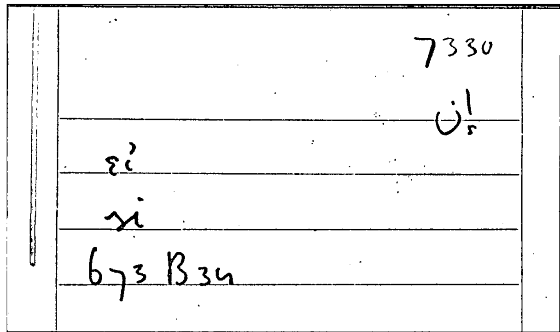 7330
εἰ
si
673 B 34